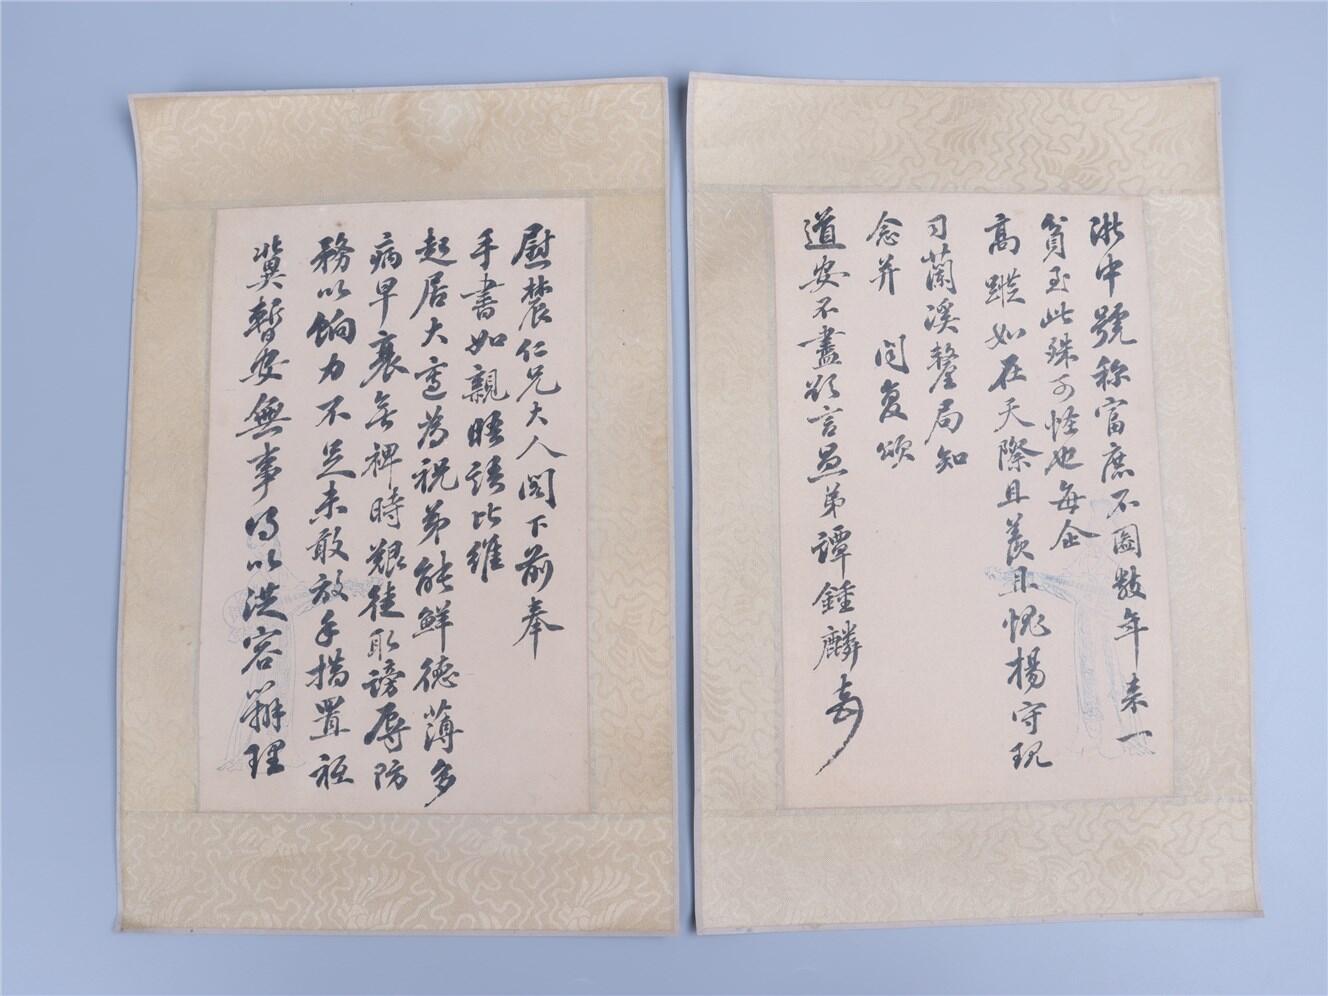 慰農仁兄大人閣下前奉
手書如親晤語比維
起居大䖏為祝弟能鮮德薄多
病早衰無裨時艱徒取謗辱防
務以餉力不足未敢放手措置祗
冀暫安無事得以從容辦理
浙中號称富庶不圖數年來一
貧至此殊可怪也每企
高蹤如在天際且羨且愧楊守現
司蘭溪釐局知
念并 問复頌
道安不盡欲言愚弟譚鍾麟